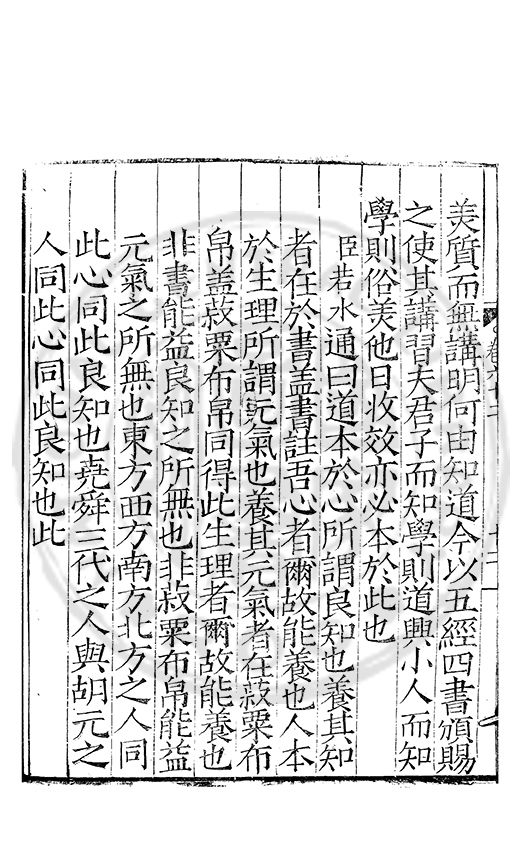 美質而無講明何由知道今以五經四書頒賜
之使其講習夫君子而知學則道興小人而知
學則俗美他日收效亦必本於此也
臣若水通曰道本於心所謂良知也養其知
者在於書蓋書註吾心者爾故能養也人本
於生理所謂元氣也養其元氣者在菽粟布
帛蓋菽粟布帛同得此生理者爾故能養也
非書能益良知之所無也非菽粟布帛能益
元氣之所無也東方西方南方北方之人同
此心同此良知也堯舜三代之人與胡元之
人同此心同此良知也此